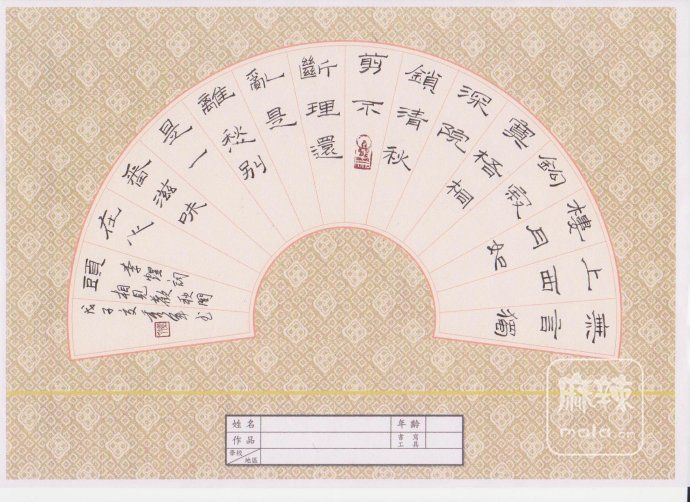 無言獨
上西
樓月如
鉤寂
寞梧桐
深院
鎖清秋
剪不
斷理還
亂是
離愁別
是一
番滋味
在心
頭
李煜詞
相見歡秋閨
戊子
姓名 年齡
作品 書寫工具
學校/地區
麻辣
mala.cn